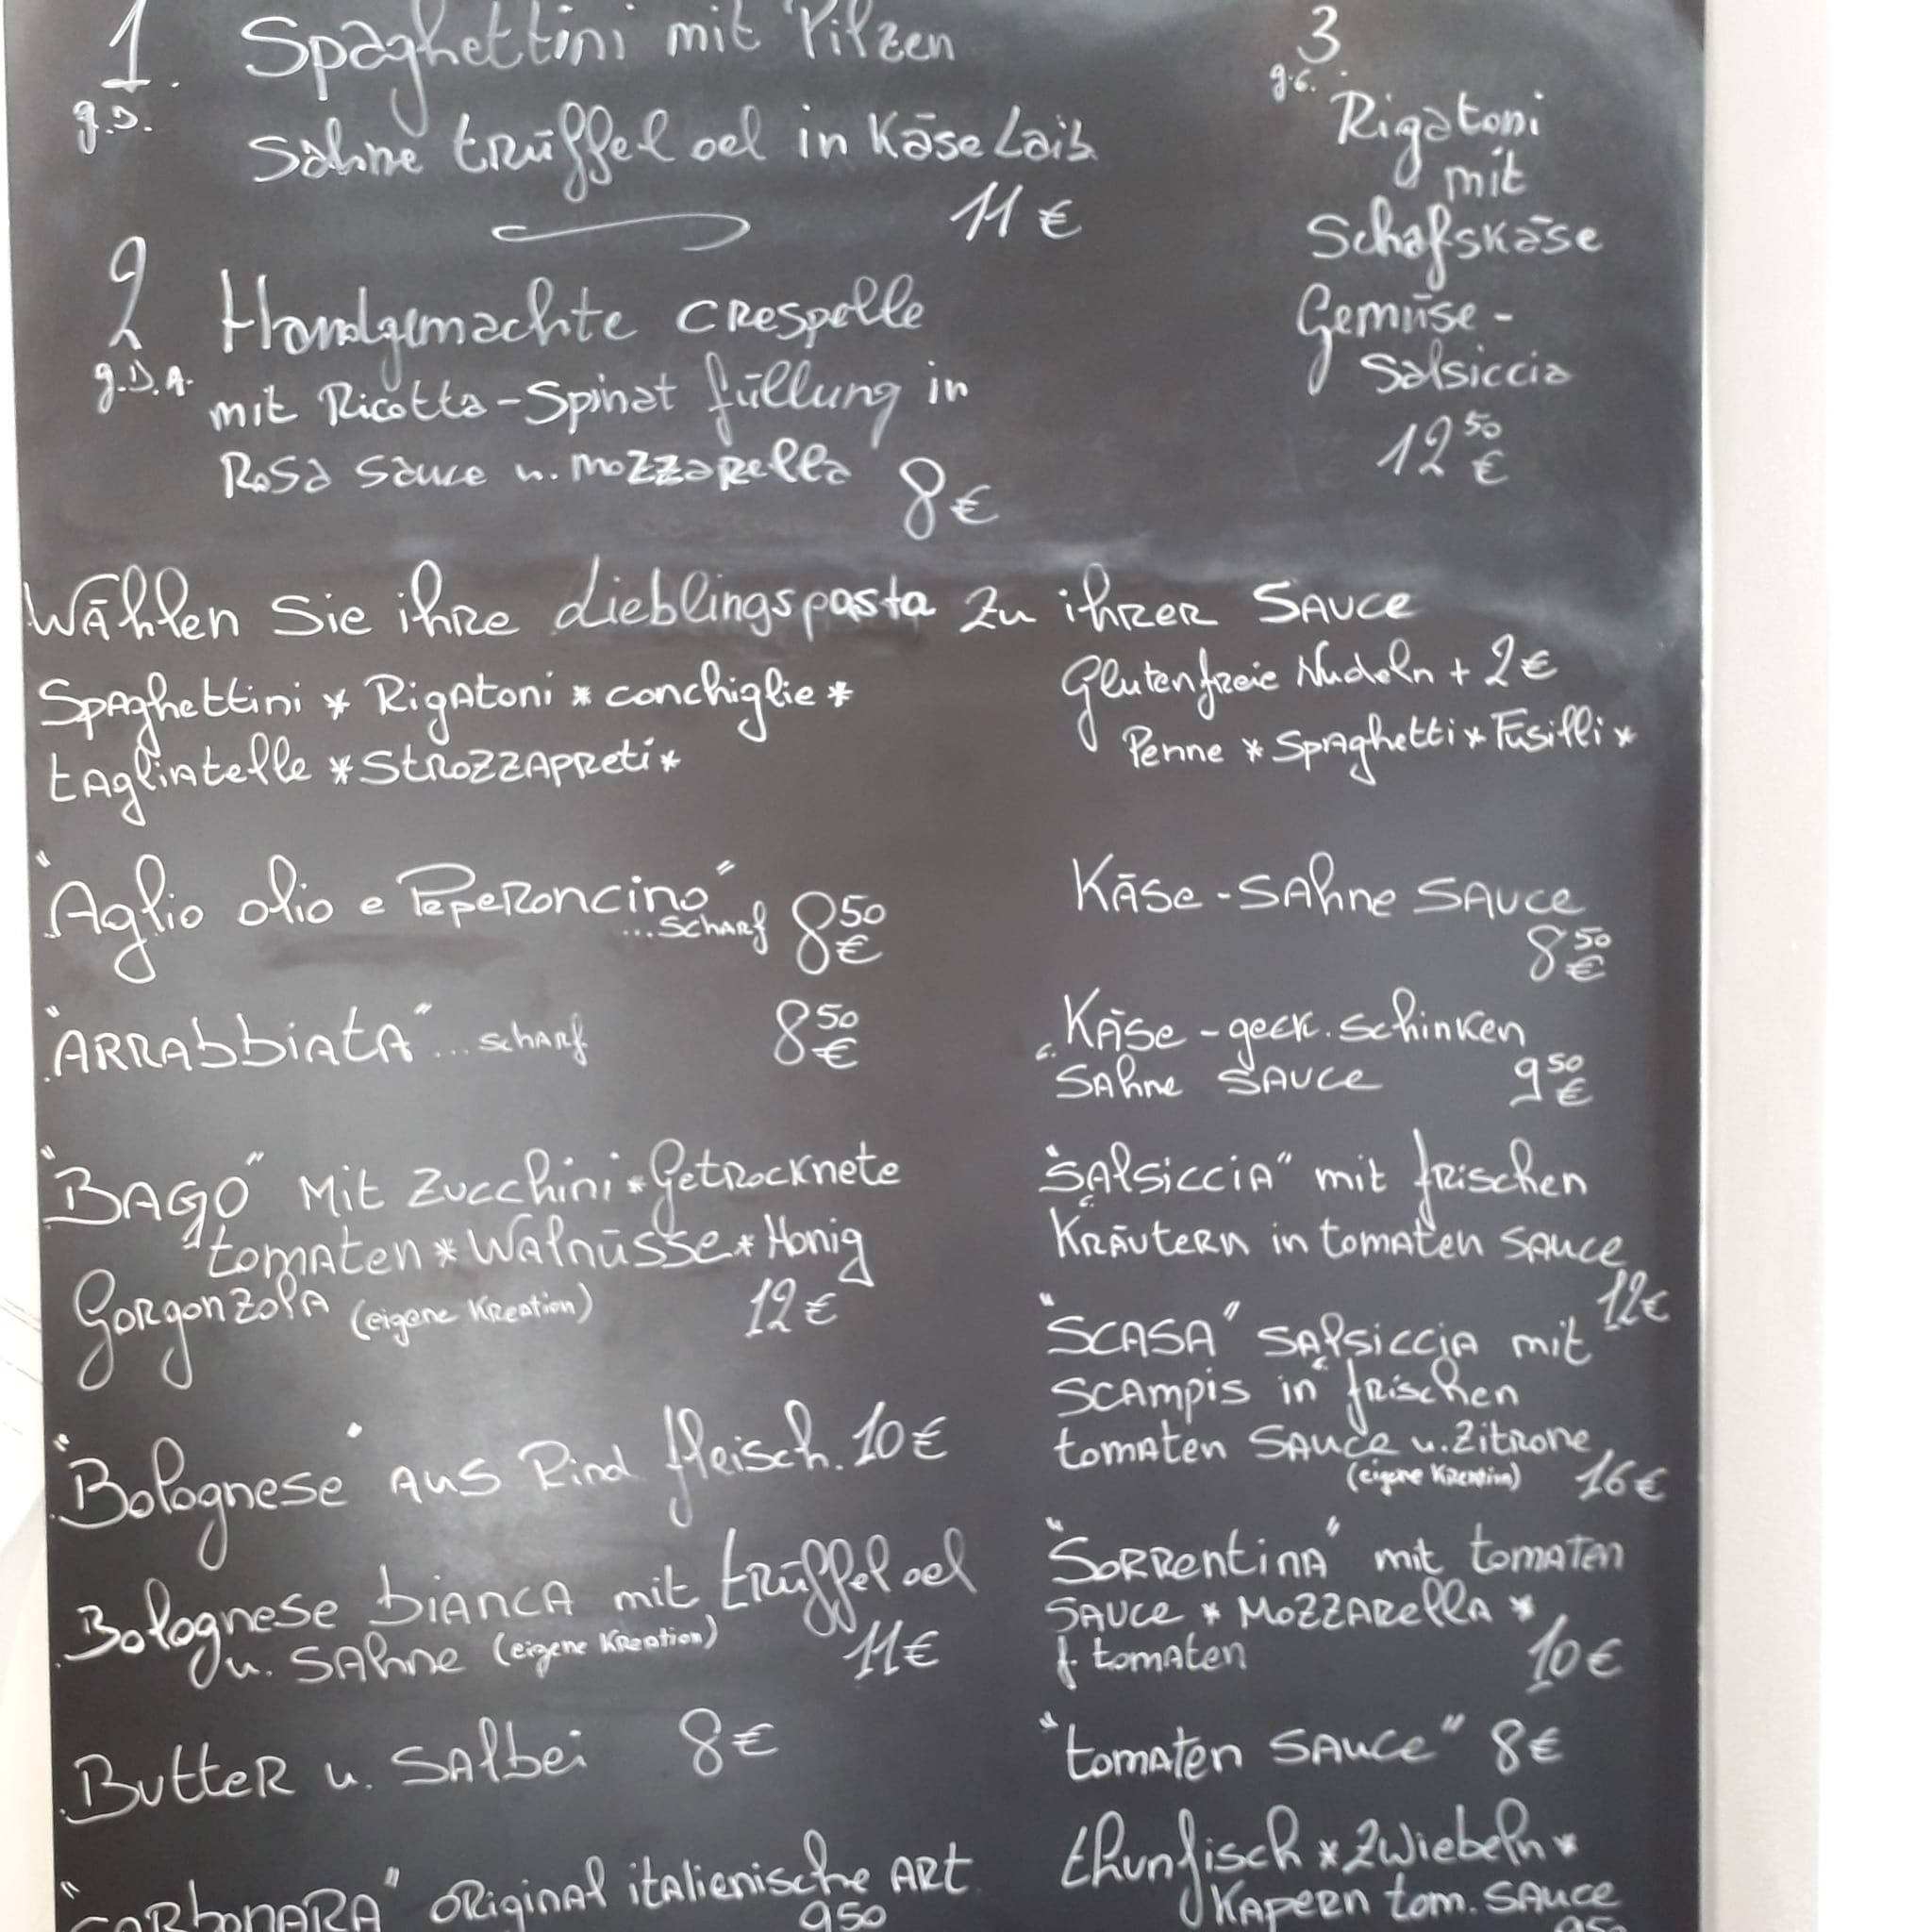 1. Spaghettini mit Pilzen
g.D.
Sahne trüffel oel in Käse Laib
11 €
2 Handgemachte crespelle
g.D.A.
mit Ricotta-Spinat füllung in
Rosa sauce u. mozzarella 8 €
3
g.c.
Rigatoni
mit
Schafskäse
Gemüse -
Salsiccia
12 50 €
Wählen Sie ihre Lieblingspasta zu ihrer Sauce
Spaghettini * Rigatoni * conchiglie *
tagliatelle * Strozzapreti *
Glutenfreie Nudeln + 2 €
Penne * Spaghetti * Fusilli *
"Aglio olio e Peperoncino"
...scharf 8 50 €
"Arrabbiata" ... scharf 8 50 €
"BAGO" mit Zucchini * Getrocknete
tomaten * Walnüsse * Honig
Gorgonzola (eigene Kreation) 12 €
"Bolognese" aus Rind fleisch. 10 €
Bolognese bianca mit trüffel oel
u. Sahne (eigene Kreation) 11 €
Butter u. Salbei 8 €
"Carbonara" original italienische Art
9 50
Käse - Sahne Sauce
8 50 €
Käse - geck. Schinken
Sahne Sauce 9 50 €
"Salsiccia" mit frischen
Kräutern in tomaten sauce
12 €
"SCASA" Salsiccia mit
Scampis in frischen
tomaten Sauce u. Zitrone
(eigene Kreation) 16 €
"Sorrentina" mit tomaten
Sauce * Mozzarella *
f. tomaten 10 €
"tomaten Sauce" 8 €
thunfisch * Zwiebeln *
Kapern tom. Sauce
9 50